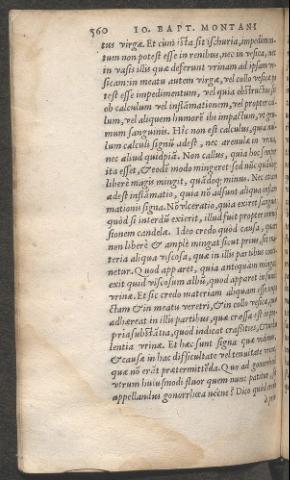 360 IO. BAPT. MONTANI
tus virgæ. Et cùm ista sit ischuria, impedimen-
tum non potest esse in renibus, nec in vesica, nec
in vasis illis quæ deserunt vrinam ad ipsam ve-
sicam: in meatu autem virgæ, vel collo vesicæ po
test esse impedimentum, vel quia obstructus sit
ob calculum vel inflāmationem, vel propter cal-
lum, vel aliquem humorē ibi impactum, vt gru-
mum sanguinis. Hîc non est calculus, quia nul-
lum calculi signū adest, nec arenula in vrina,
nec aliud quidpiā. Non callus, quia hoc semper
ita esset, & eodē modo mingeret sed nūc quidem
liberè magis mingit, quādoq; minus. Nec etiam
adest inflāmatio, quia nō adsunt aliqua inflam
mationis signa. Nō vlceratio, quia exiret sanguis
quòd si interdū exierit, illud fuit propter immis
sionem candelæ. Ideo credo quòd causa, quare
non liberè & amplè mingat sicut prius, sit ma-
teria aliqua viscosa, quæ in illis partibus conti-
netur. Quod apparet, quia antequàm mingat
exit quid viscosum albū, quod apparet in fundo
vrinæ. Et sic credo materiam aliquam esse impa
ctam & in meatu veretri, & in collo vesicæ, quæ
adhæreat in illis partibus, quæ crassa est in pro-
pria substātia, quod indicat crassities, & turbu
lentia vrinæ. Et hæc sunt signa quæ
& causæ in hac difficultate vel tenuitate vrinæ,
quæ nō erāt prætermittēda. Quo ad gonorrhœā
vtrum huiusmodi fluor quem nunc patitur, sit
appellandus gonorrhœa nécne? Dico quòd